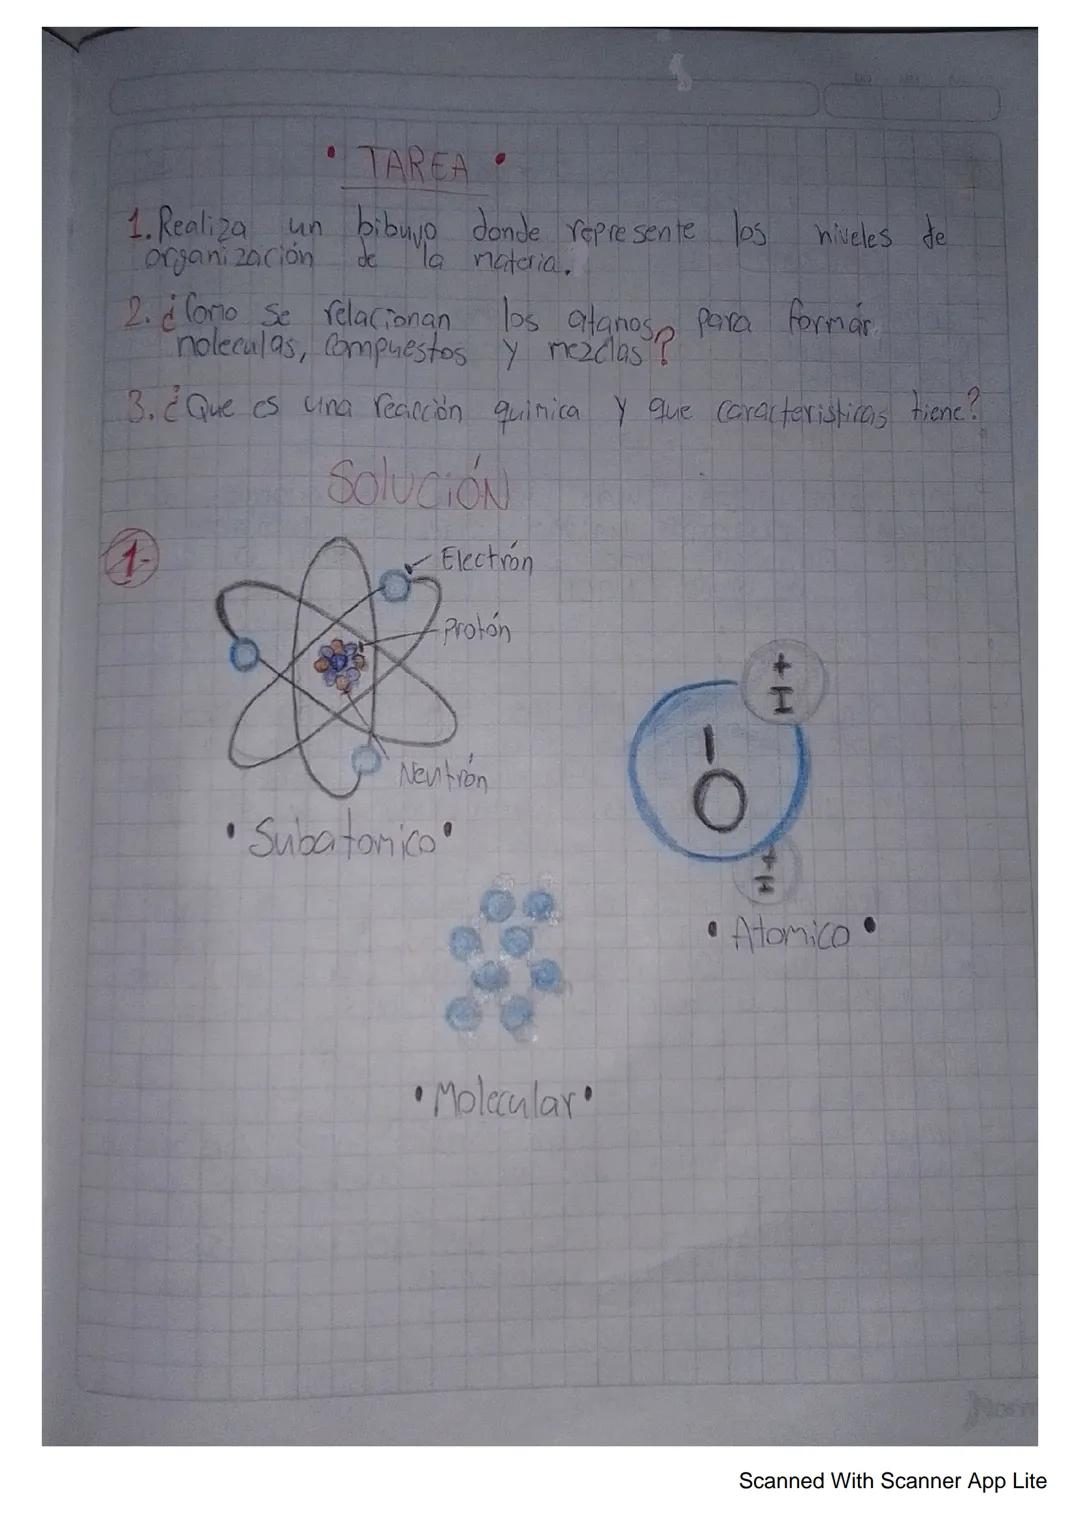 • TAREA •
1. Realiza un bibuyo donde represente los niveles de
organización de la materia.
2. ¿Como se relacionan los atamos para formár
moleculas, compuestos y mezclas?
3. ¿Que es una reacción quimica y que caracteristicas tiene?
Solución
1-
Electrón
Protón
Neutrón
• Subatomico •
H +
- O
H +
• Atomico •
• Molecular •
Norm
Scanned With Scanner App Lite